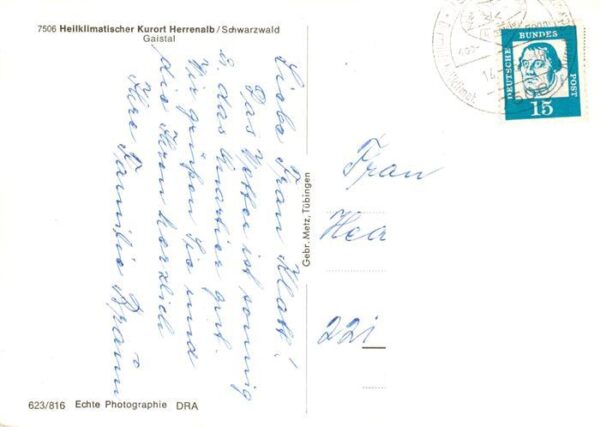 7506 Heilklimatischer Kurort Herrenalb / Schwarzwald
Gaistal
Liebe Frau Klatt!
Das Wetter ist sonnig
u. das Quartier gut.
Wir grüßen Sie und
die Ihren herzlich
Ihre Familie Bräun
Gebr. Metz, Tübingen
DEUTSCHE BUNDES POST
15
Frau
Hea
221
623/816 Echte Photographie DRA